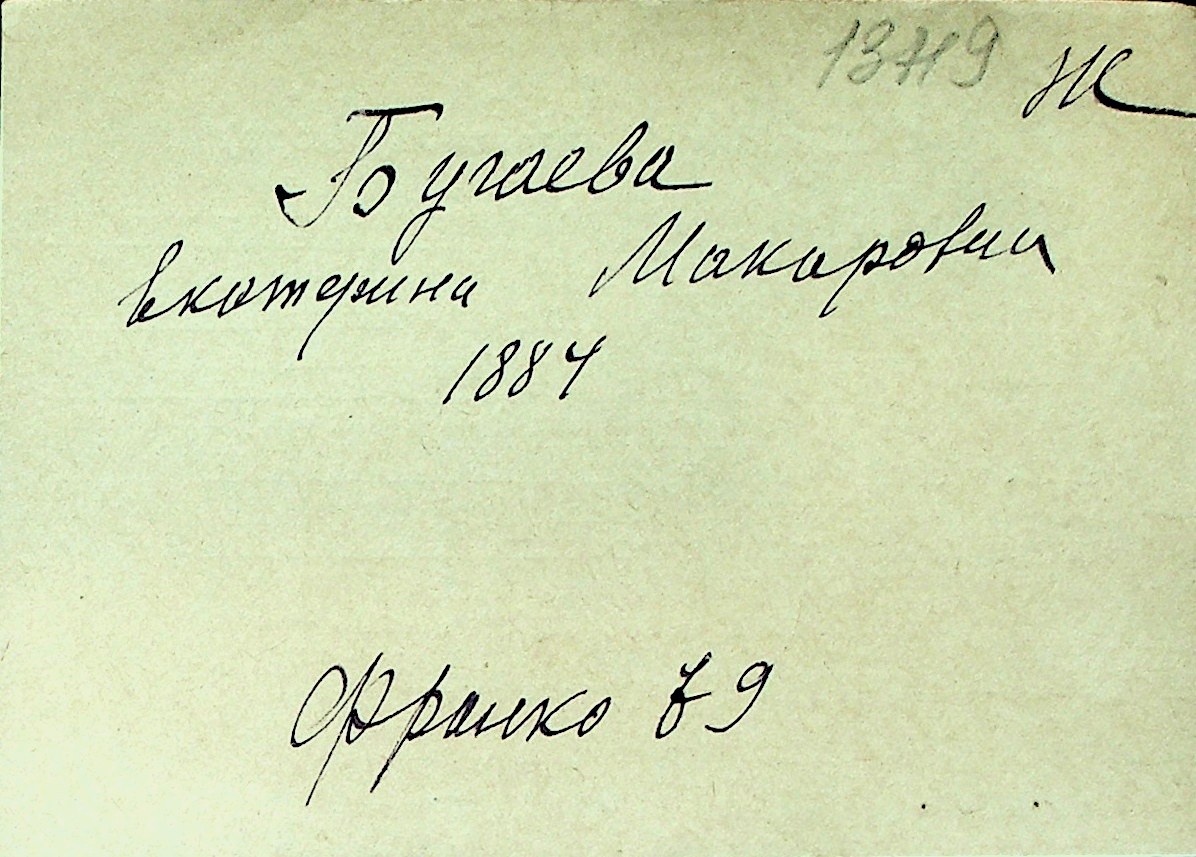 Ж
Бугаева
Екатерина Макаровна
1884
Франко 79